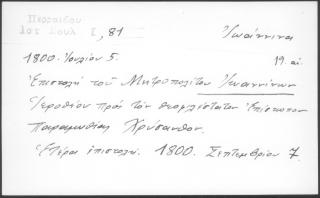 Περσαίδου
1οσ Ιουλ I, 81 Ἰωάννινα
1800. Ἰουλίου 5. 19 αἰ.
Ἐπιστολή τοῦ Μητροπολίτου Ἰωαννίνων
Ἱεροθέου πρός τόν θεοφιλέστατον Ἐπίσκοπον
Παραμυθίας Χρύσανθον.
Ἑτέρα ἐπιστολή. 1800. Σεπτεμβρίου 7.